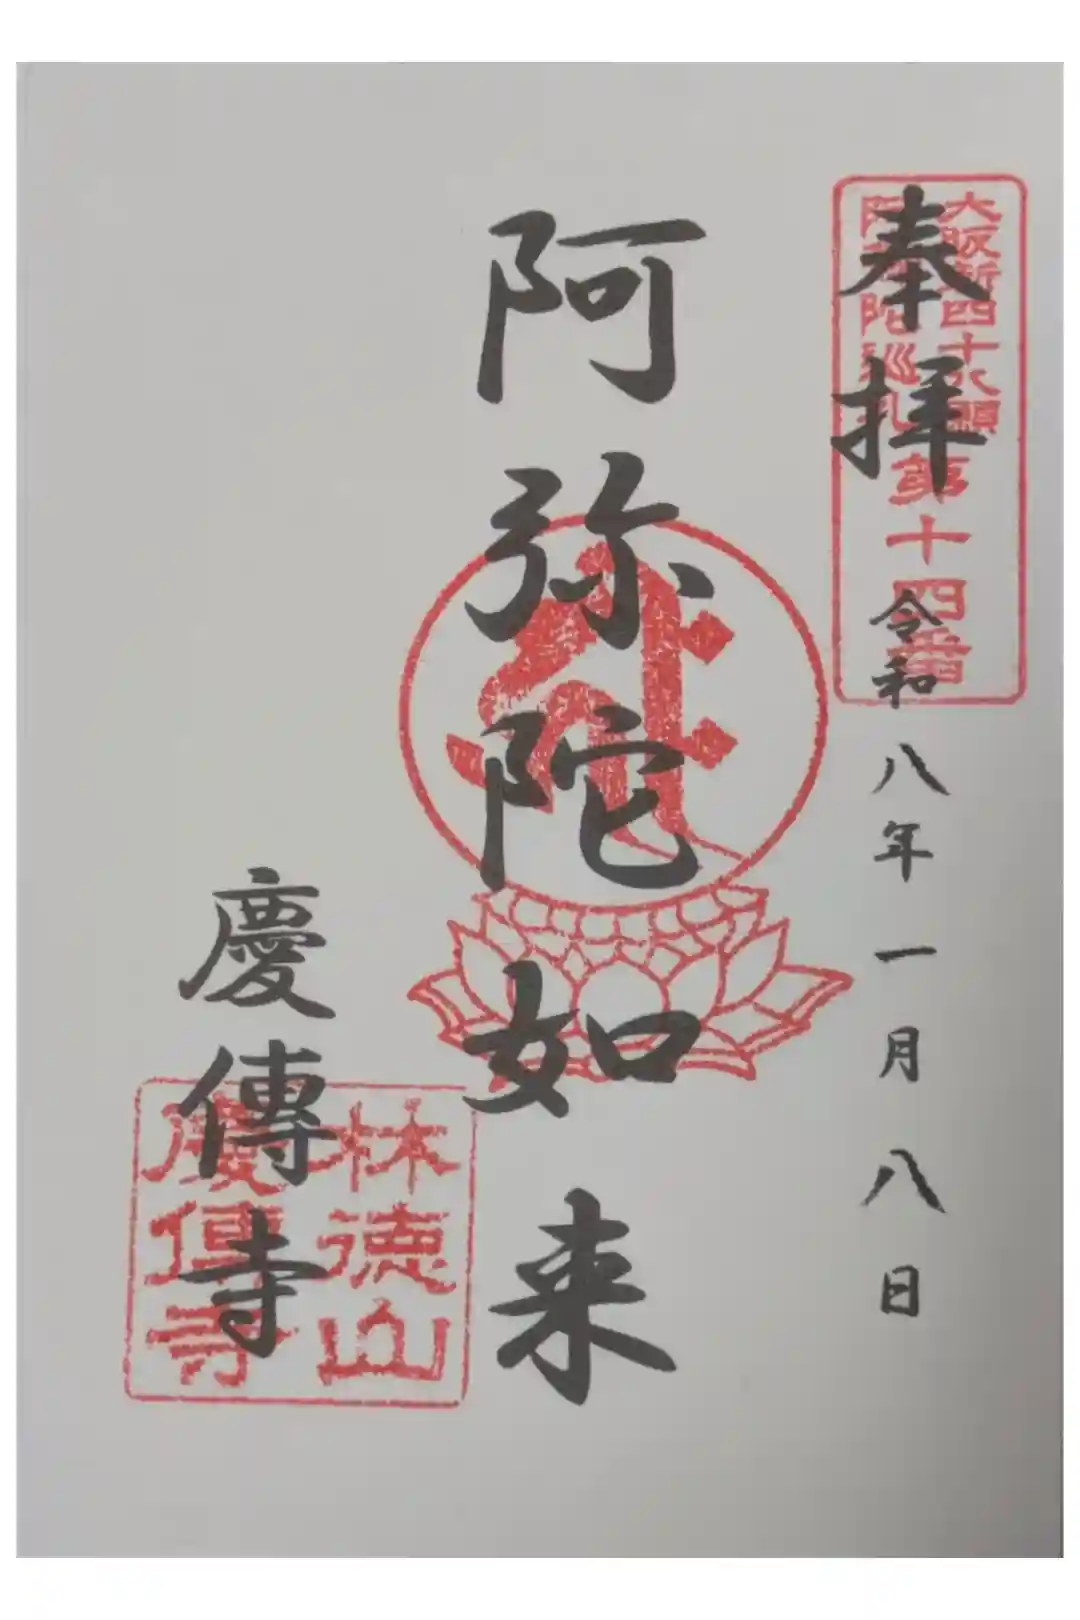 奉拝
令和八年一月八日
大阪新四十八願
阿弥陀巡礼第十四番
阿弥陀如来
慶傳寺
林徳山
慶傳寺